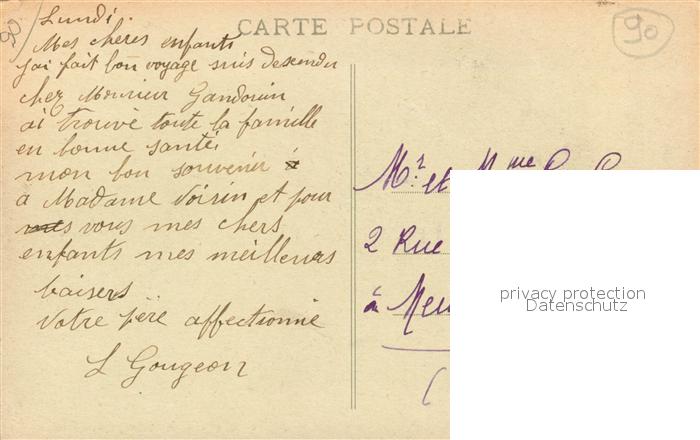 CARTE POSTALE
90
90
Lundi.
Mes chères enfants
j'ai fait bon voyage suis descendu
chez Monsieur Gandouin
ai trouvé toute la famille
en bonne santé
mon bon souvenir
a Madame Voisin et pour
vous mes chers
enfants mes meilleurs
baisers
Votre père affectionné
L Gougeon
Mr et Mme
2 Rue
à
privacy protection
Datenschutz